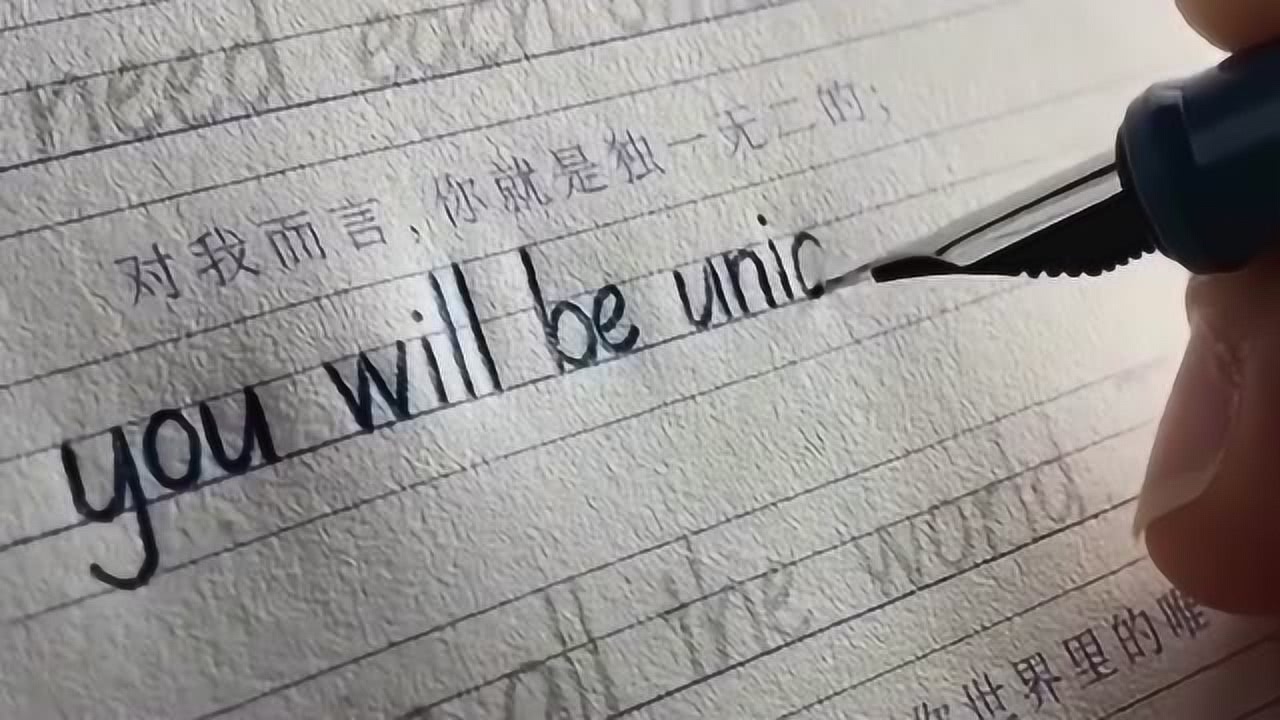 need each
对我而言,你就是独一无二的;
you will be unic
all the world
你世界里的唯